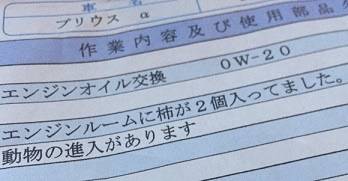 車名
プリウス α
作業内容及び使用部品
エンジンオイル交換 0W-20
エンジンルームに柿が2個入ってました。
動物の進入があります